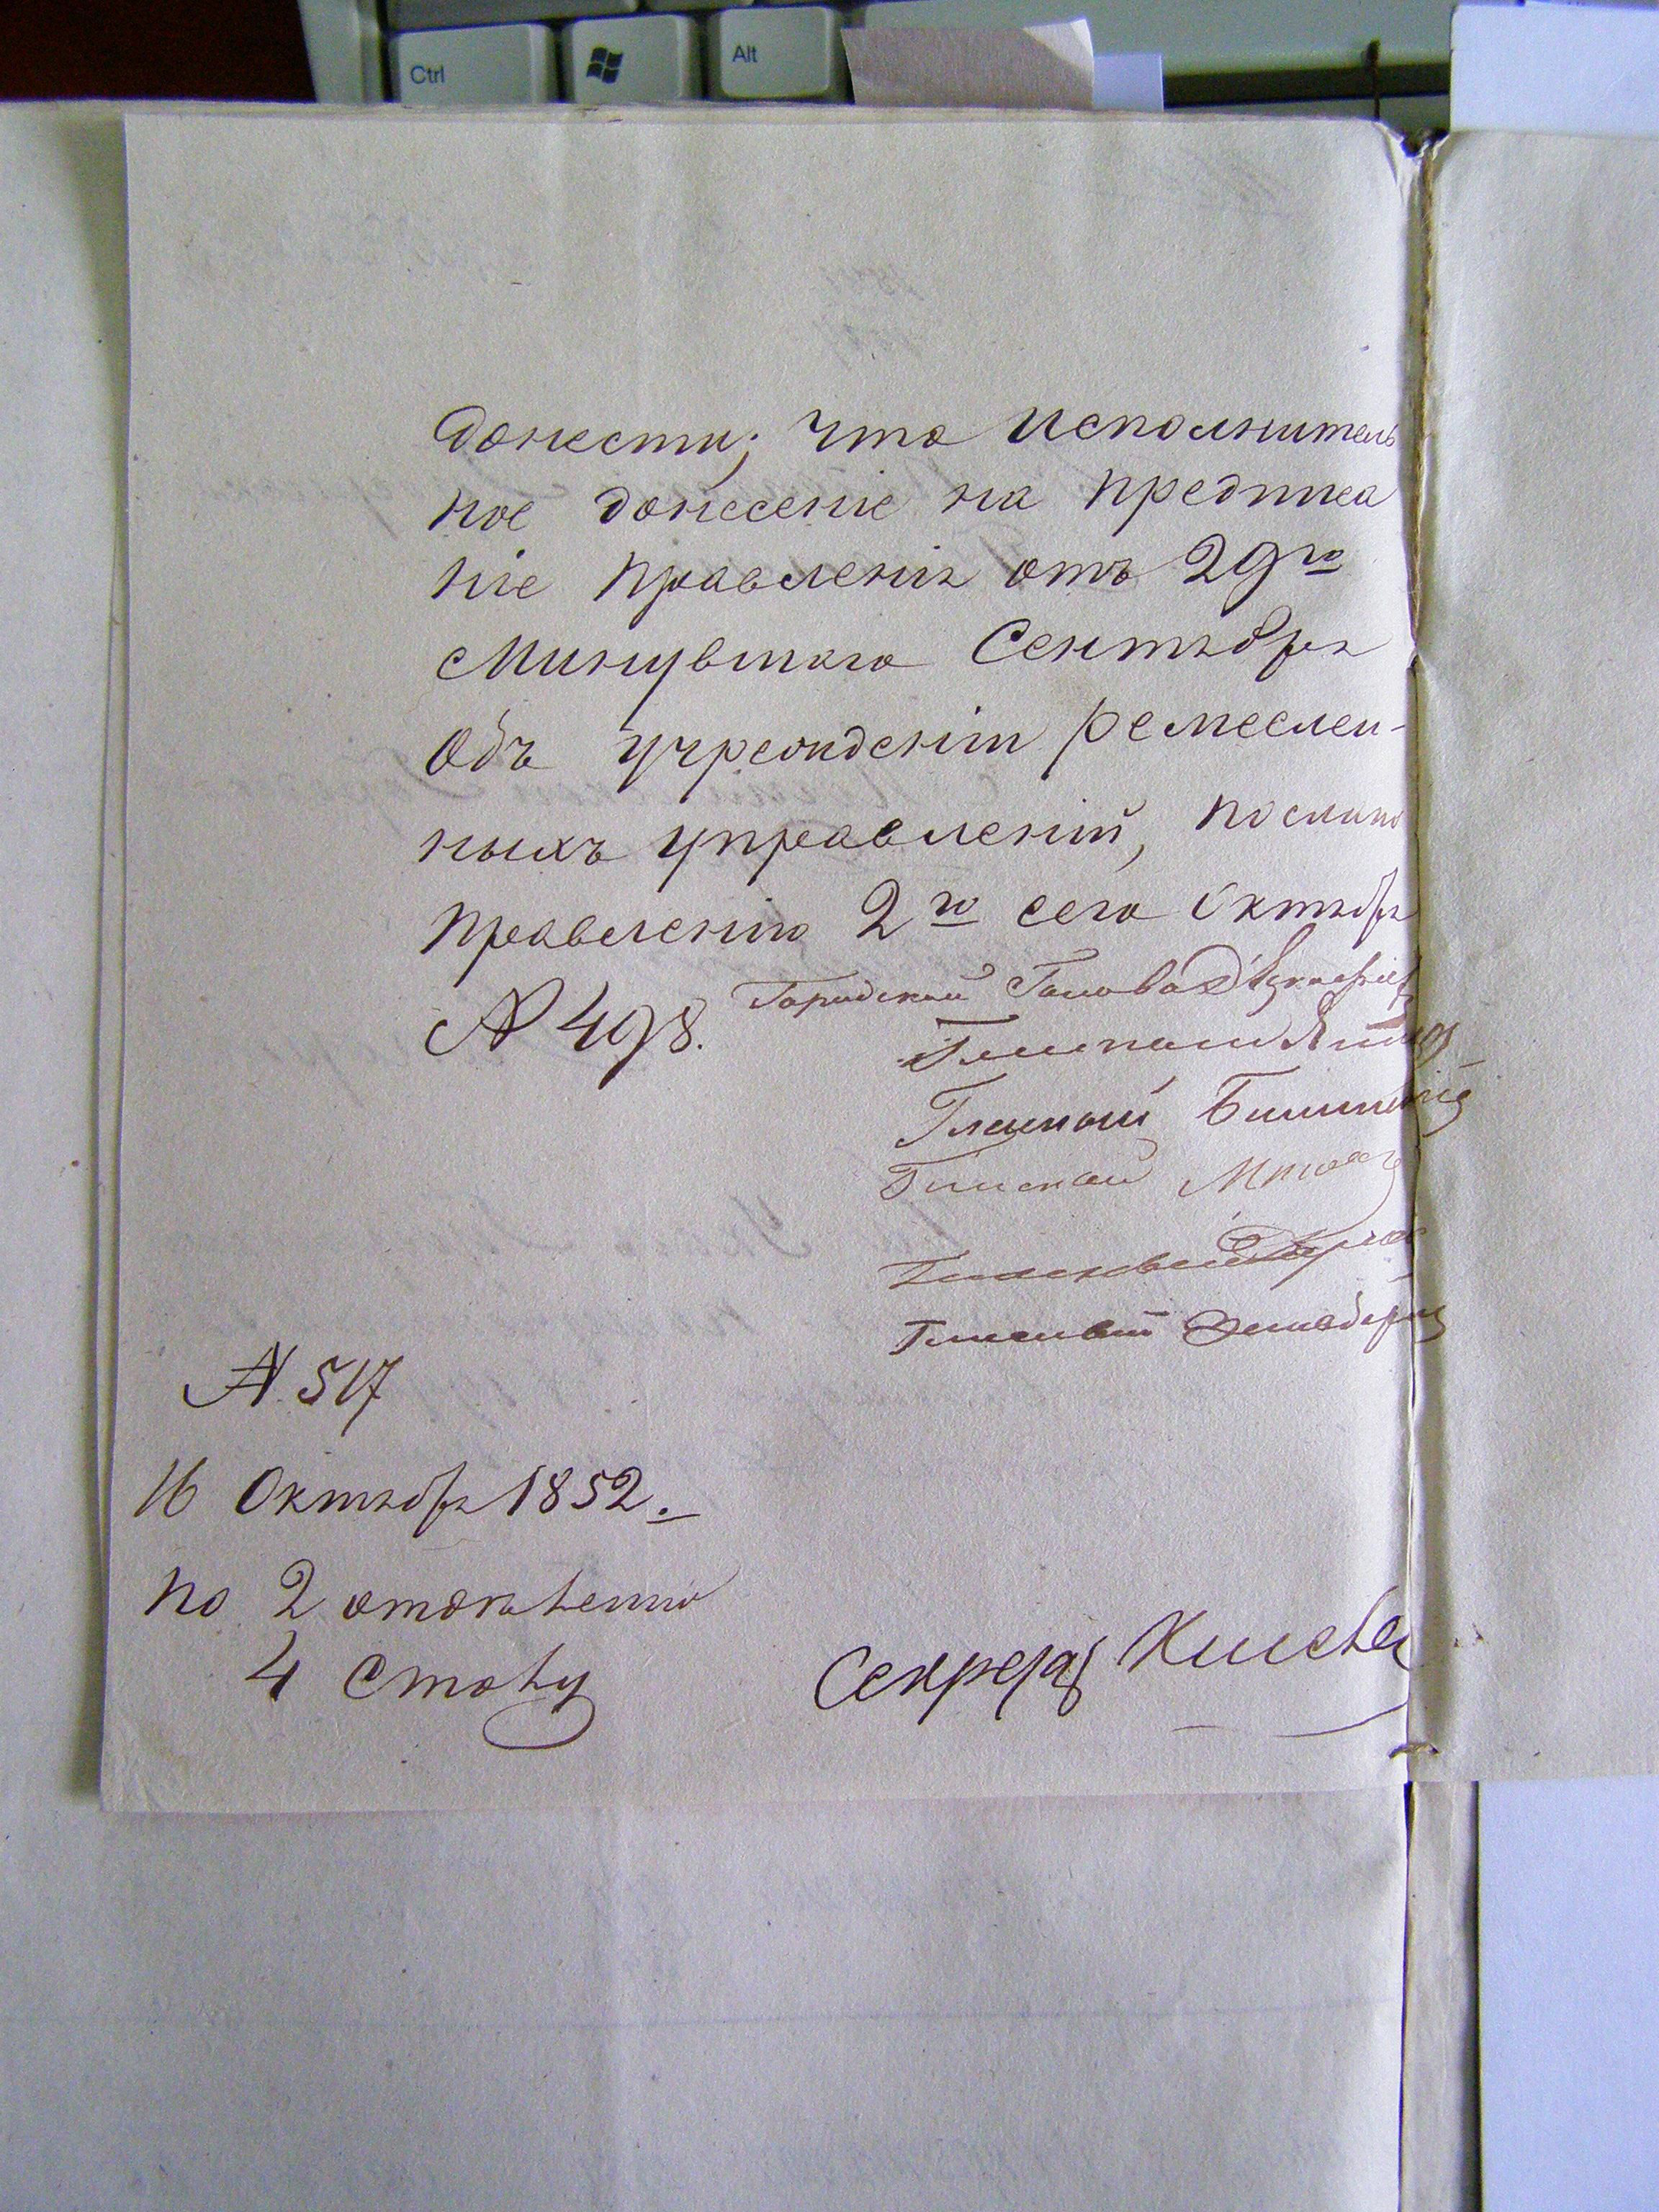 Ctrl
Alt
донести; что исполнитель
ное донесеніе на предписа
ніе Правленія отъ 29го
Минувшаго Сентября
объ учрежденіи ремеслен-
ныхъ управленій, послано
Правленію 2го сего Октября
№ 498.
Городской Голова
Гласный
Гласный
Гласный
Гласный
Гласный
№ 517
16 Октября 1852.
по 2 отдѣленію
4 столу
Секретарь